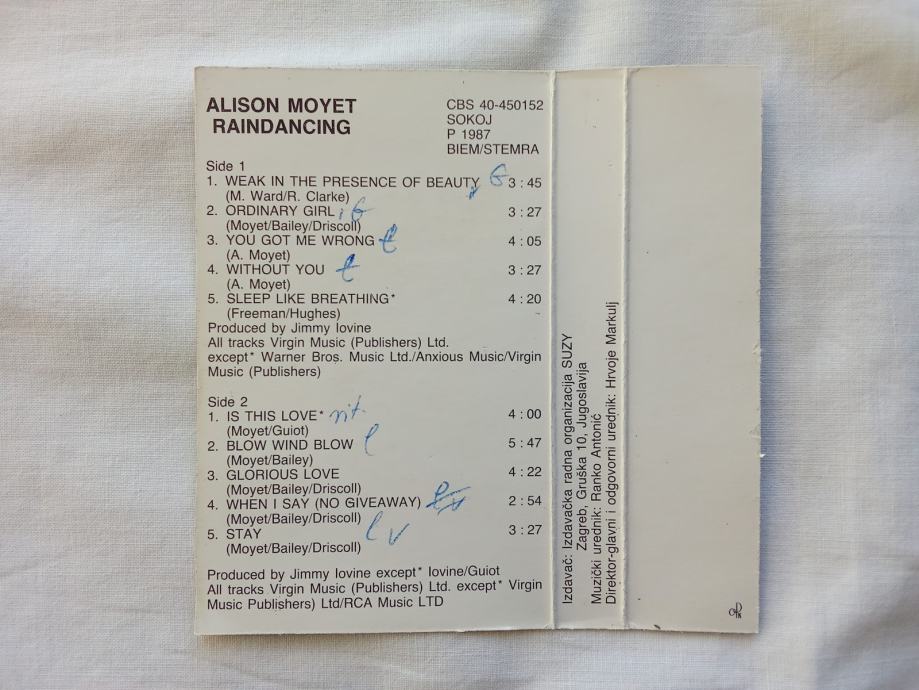 ALISON MOYET
RAINDANCING
CBS 40-450152
SOKOJ
P 1987
BIEM/STEMRA
Side 1
1. WEAK IN THE PRESENCE OF BEAUTY 3 : 45
(M. Ward/R. Clarke)
2. ORDINARY GIRL 3 : 27
(Moyet/Bailey/Driscoll)
3. YOU GOT ME WRONG 4 : 05
(A. Moyet)
4. WITHOUT YOU 3 : 27
(A. Moyet)
5. SLEEP LIKE BREATHING* 4 : 20
(Freeman/Hughes)
Produced by Jimmy Iovine
All tracks Virgin Music (Publishers) Ltd.
except* Warner Bros. Music Ltd./Anxious Music/Virgin
Music (Publishers)
Side 2
1. IS THIS LOVE* 4 : 00
(Moyet/Guiot)
2. BLOW WIND BLOW 5 : 47
(Moyet/Bailey)
3. GLORIOUS LOVE 4 : 22
(Moyet/Bailey/Driscoll)
4. WHEN I SAY (NO GIVEAWAY) 2 : 54
(Moyet/Bailey/Driscoll)
5. STAY 3 : 27
(Moyet/Bailey/Driscoll)
Produced by Jimmy Iovine except* Iovine/Guiot
All tracks Virgin Music (Publishers) Ltd. except* Virgin
Music Publishers) Ltd/RCA Music LTD
Izdavač: Izdavačka radna organizacija SUZY
Zagreb, Gruška 10, Jugoslavija
Muzički urednik: Ranko Antonić
Direktor-glavni i odgovorni urednik: Hrvoje Markulj